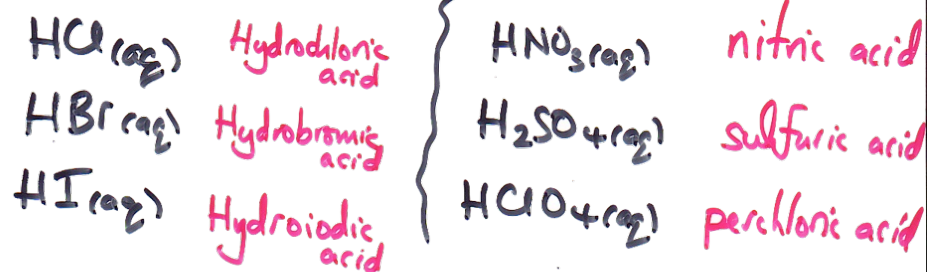 HCl(aq) Hydrochloric acid
HBr(aq) Hydrobromic acid
HI(aq) Hydroiodic acid
HNO3(aq) nitric acid
H2SO4(aq) sulfuric acid
HClO4(aq) perchloric acid